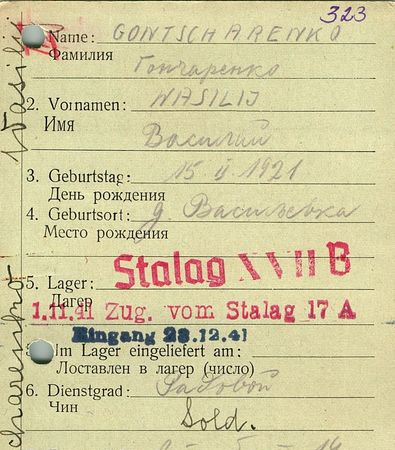 323
1. Name: GONTSCHARENKO
Фамилия Гончаренко
2. Vornamen: WASILIJ
Имя Василий
3. Geburtstag: 15 II 1921
День рождения
4. Geburtsort: д. Васильевка
Место рождения
5. Lager: Stalag XVII B
Лагер
1.11.41 Zug. vom Stalag 17 A
Eingang 23.12.41
Im Lager eingeliefert am:
Доставлен в лагер (число)
6. Dienstgrad: рядовой
Чин Sold.
Wasilij
charenko